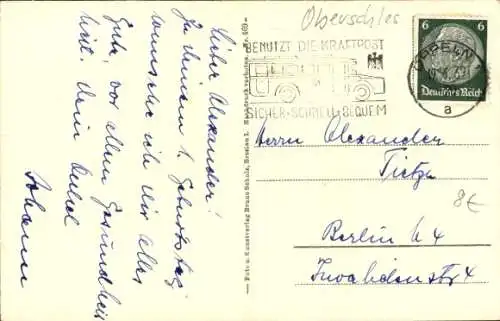 Lieber Alexander!
Zu deinem 1. Geburtstag
wünsche ich dir alles
Gute, vor allem Gesundheit
Dein Onkel
Johann
Oberschles
BENUTZT DIE KRAFTPOST
SICHER·SCHNELL·BEQUEM
OPPELN
a
6 6
Deutsches Reich
Foto u. Kunstverlag Bruno Scholz, Breslau I.
Herrn Alexander
Tietze
Berlin N 4
Invalidenstr 4
8€